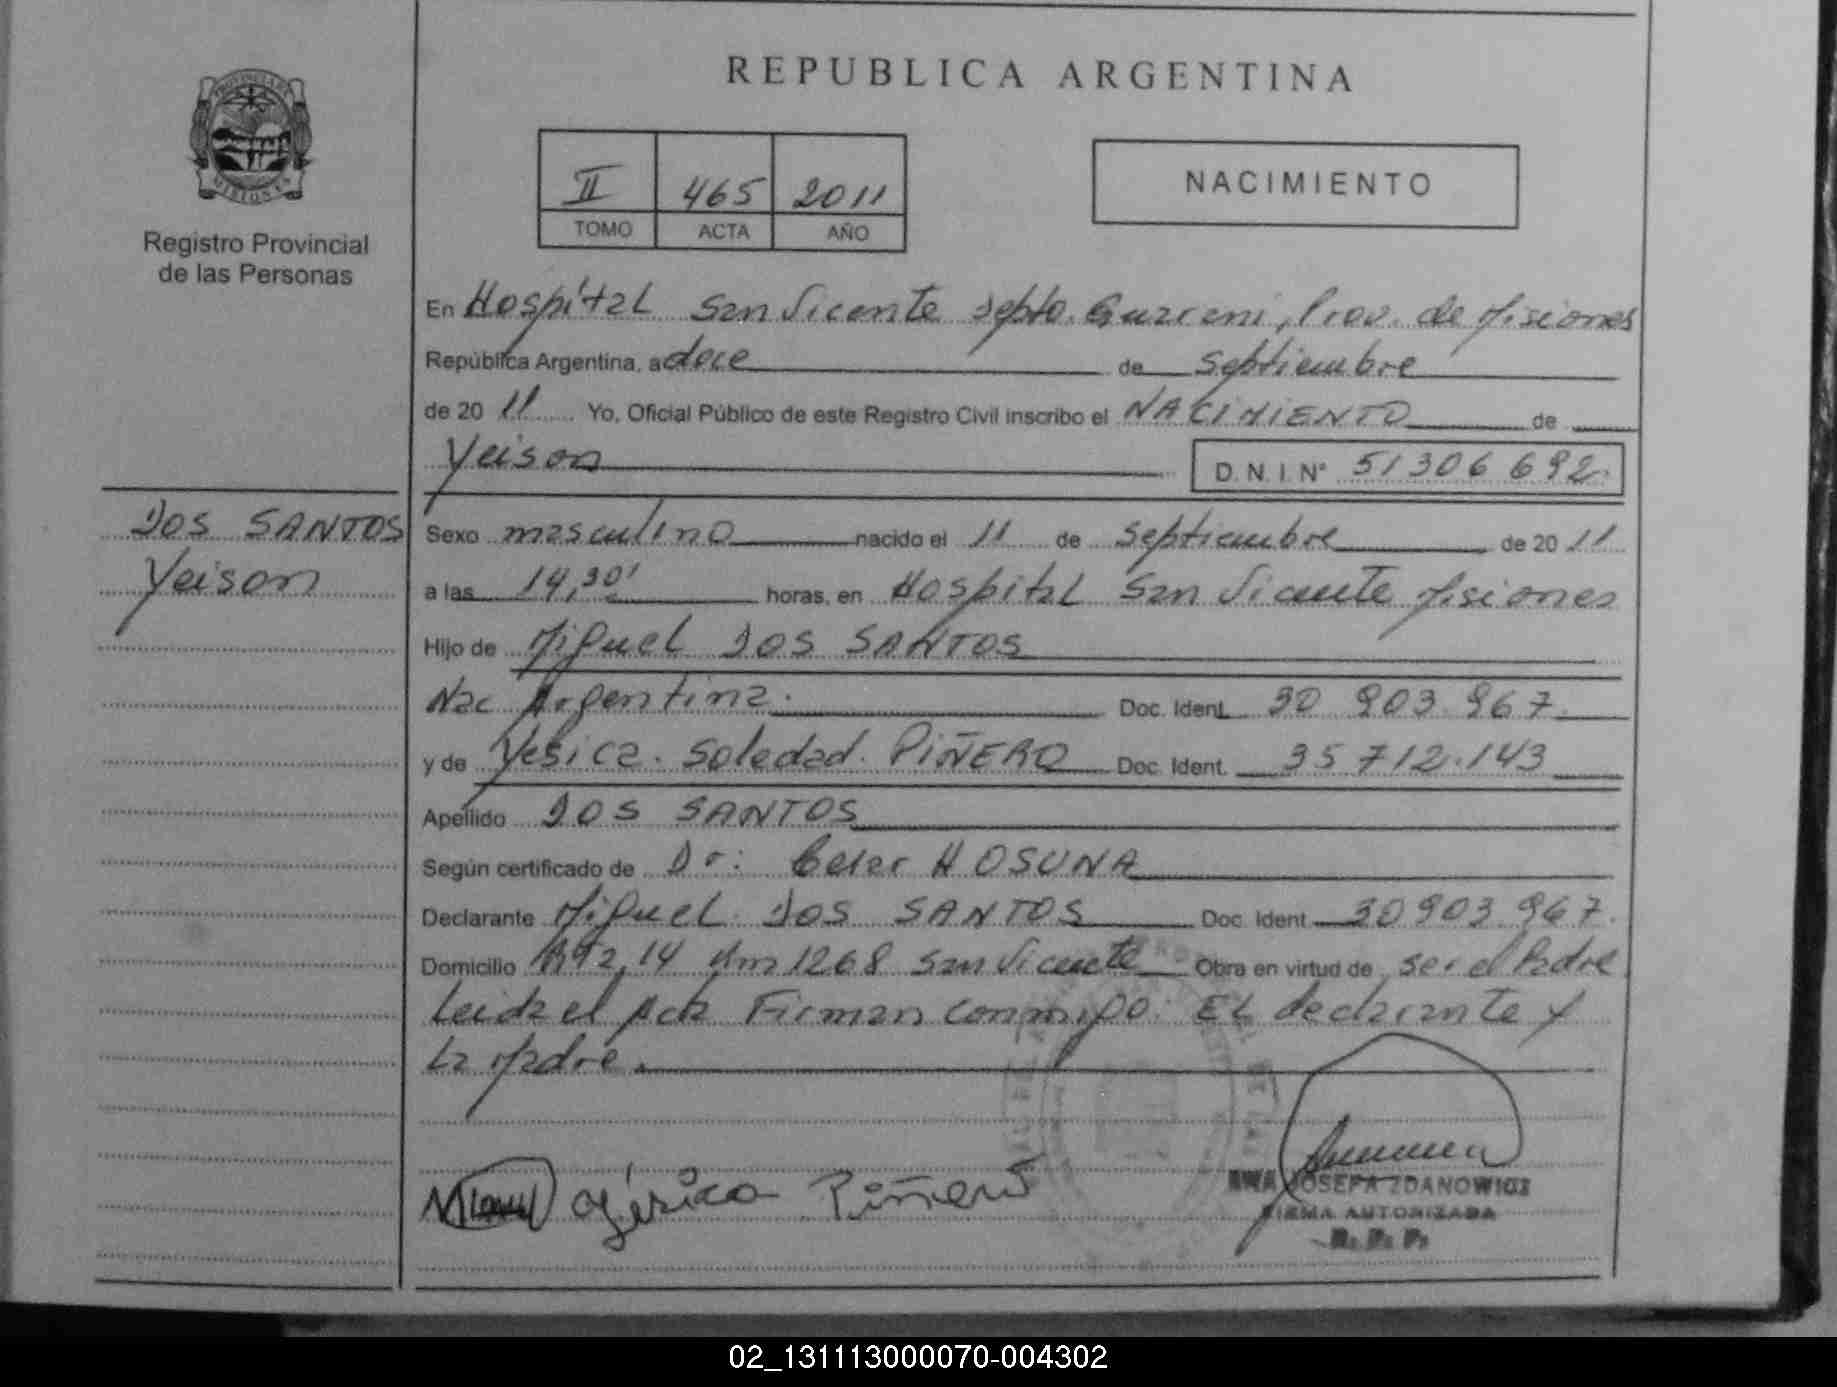 REPUBLICA ARGENTINA
PROVINCIA DE
MISIONES
Registro Provincial
de las Personas
II 465 2011
TOMO ACTA AÑO
NACIMIENTO
En Hospital San Vicente Depto. Guarani, Prov. de Misiones
República Argentina, a doce de Septiembre
de 20 11 Yo, Oficial Público de este Registro Civil inscribo el NACIMIENTO de
Yeison D. N. I. N° 51306 692
DOS SANTOS
Yeison
Sexo masculino nacido el 11 de Septiembre de 20 11
a las 14,30' horas, en Hospital San Vicente Misiones
Hijo de Miguel DOS SANTOS
Nac Argentina. Doc. Ident. 30 903 967
y de Yesica Soledad PIÑERO Doc. Ident. 35 712.143
Apellido DOS SANTOS
Según certificado de Dr: Cesar HOSUNA
Declarante Miguel DOS SANTOS Doc. Ident 30903 967.
Domicilio 14 Km 1268 San Vicente Obra en virtud de ser el Padre
Leida el Acta Firman conmigo: EL declarante y
La Madre.
Piñero
JOSEFA ZDANOWICZ
FIRMA AUTORIZADA
R. P. P.
02_131113000070-004302